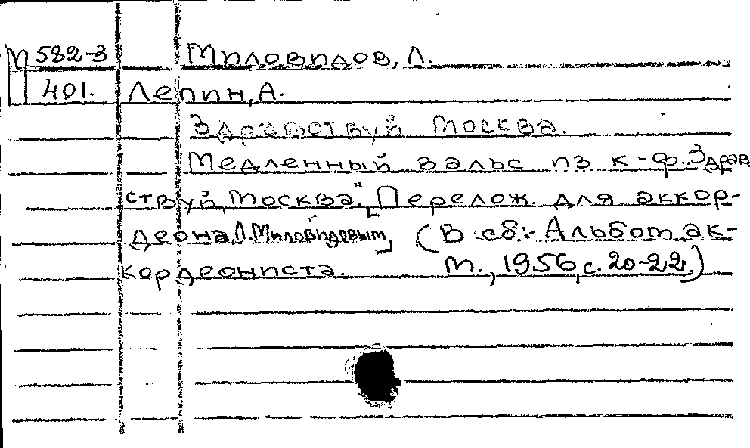 М 582-3 Миловидов, Л.
401. Лепин, А.
Здравствуй Москва.
Медленный вальс из к-ф. Здрав
ствуй, Москва". [Перелож для аккор-
деона Л. Миловидовым] (В сб:- Альбом ак-
кордеониста. М., 1956, с. 20-22.)